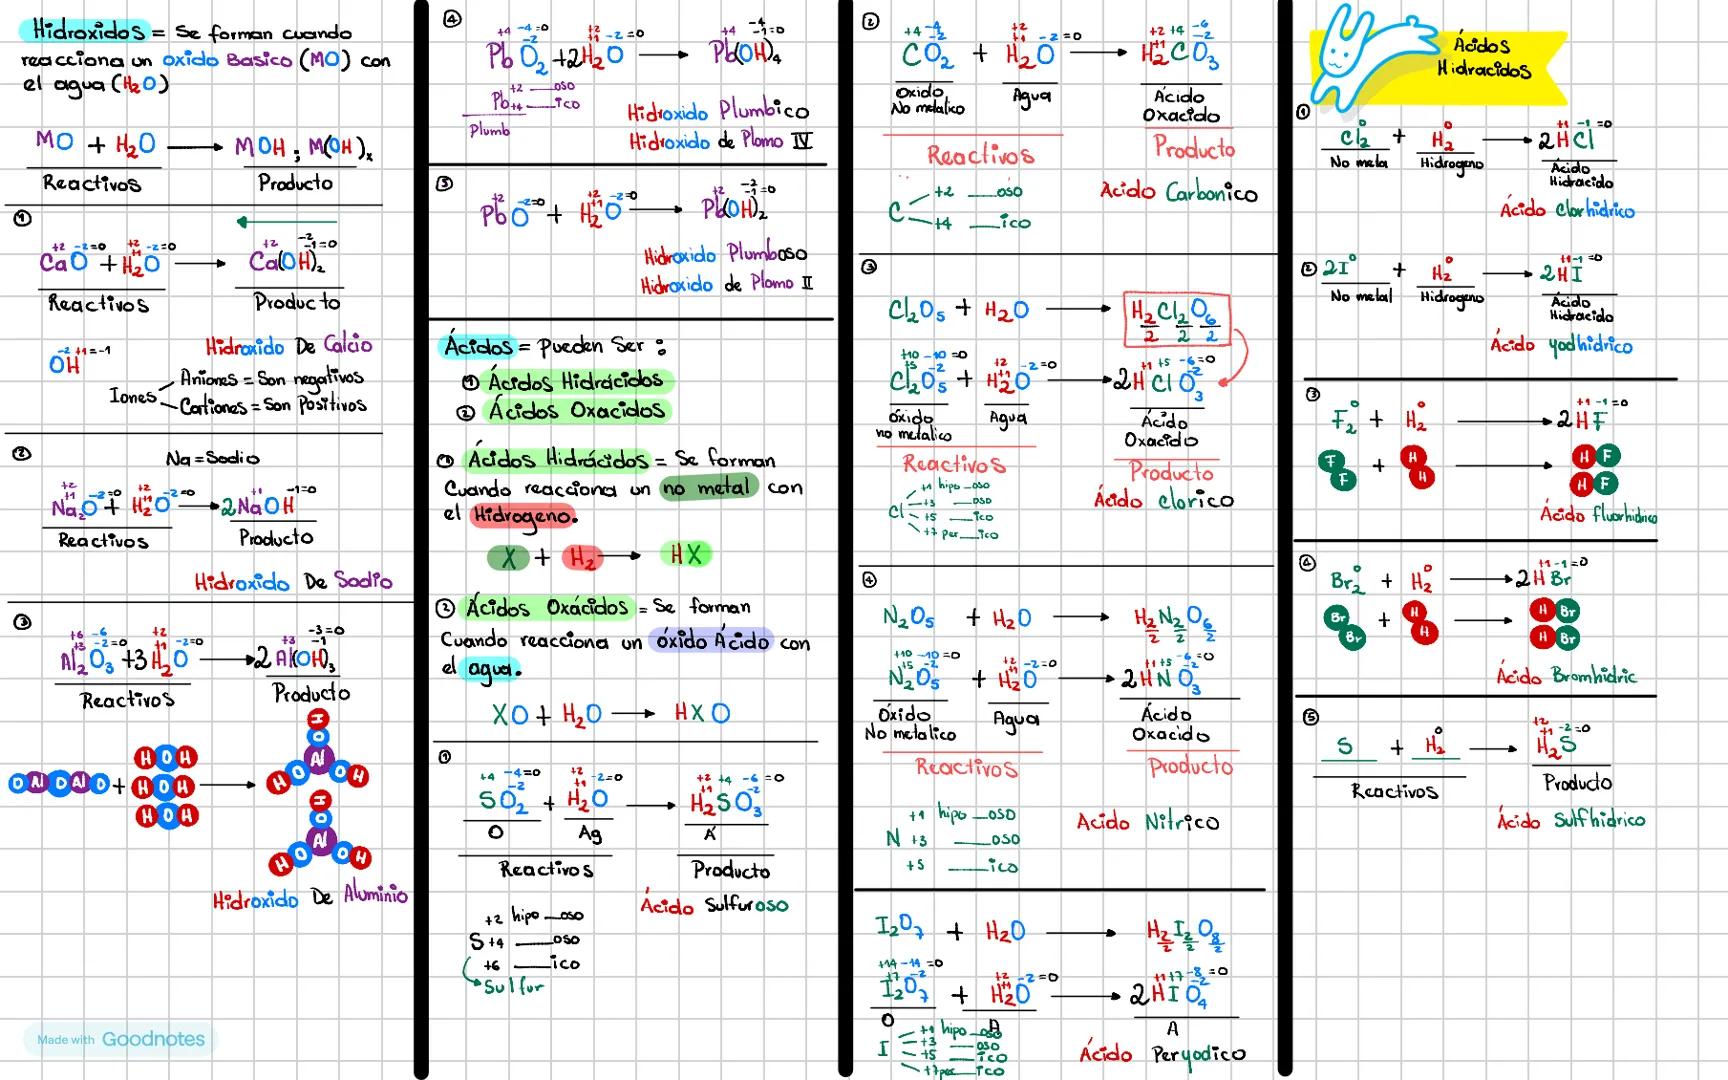 Hidroxidos = Se forman cuando
reacciona un oxido Basico (MO) con
el agua (H₂O)
MO + H₂O → MOH ; M(OH)ₓ
Reactivos Producto
①
+2 -2=0 +2 +1 -2=0 +2 -2 -1=0
CaO + H₂O → Ca(OH)₂
Reactivos Producto
Hidroxido De Calcio
-2 +1=-1
OH
Iones
Aniones = Son negativos
Cationes = Son Positivos
② Na=Sodio
+2 +1 -2=0 +2 +1 -2=0 +1 -1=0
Na₂O + H₂O → 2NaOH
Reactivos Producto
Hidroxido De Sodio
③
+6 -6 +3 -2=0 +2 +1 -2=0 +3 -3=0 -1
Al₂O₃ + 3H₂O → 2Al(OH)₃
Reactivos Producto
O Al O Al O + H O H H O H H O H →
H O Al H O O H
H O Al H O O H
Hidroxido De Aluminio
Made with Goodnotes
④
+4 -4=0 -2 +2 +1 -2=0 +4 -4 -1=0
PbO₂ + 2H₂O → Pb(OH)₄
Pb +2 ___oso
+4 ___ico
Plumb
Hidroxido Plumbico
Hidroxido de Plomo IV
⑤
+2 -2=0 +2 +1 -2=0 +2 -2 -1=0
PbO + H₂O → Pb(OH)₂
Hidroxido Plumboso
Hidroxido de Plomo II
Ácidos = Pueden Ser :
① Ácidos Hidrácidos
② Ácidos Oxacidos
① Ácidos Hidrácidos = Se forman
Cuando reacciona un no metal con
el Hidrogeno.
X + H₂ → HX
② Ácidos Oxácidos = Se forman
Cuando reacciona un óxido Ácido con
el agua.
XO + H₂O → HXO
①
+4 -4=0 -2 +2 +1 -2=0 +2 +1 +4 -6=0 -2
SO₂ + H₂O → H₂SO₃
O Ag Á
Reactivos Producto
Ácido Sulfuroso
+2 hipo ___oso
S +4 ___oso
+6 ___ico
Sulfur
②
+4 -4 -2 =0 +2 +1 -2=0 +2 +1 +4 -6 -2 =0
CO₂ + H₂O → H₂CO₃
Oxido No metalico Agua Ácido Oxacido
Reactivos Producto
C +2 ___oso
+4 ___ico
Acido Carbonico
③
Cl₂O₅ + H₂O → H₂Cl₂O₆
2 2 2
+10 -10=0 +5 -2 +2 +1 -2=0 +1 +5 -6=0 -2
Cl₂O₅ + H₂O → 2HClO₃
óxido no metalico Agua Ácido Oxacido
Reactivos Producto
Cl +1 hipo _oso
+3 ___oso
+5 ___ico
+7 per __ico
Ácido clorico
④
N₂O₅ + H₂O → H₂N₂O₆
2 2 2
+10 -10=0 +5 -2 +2 +1 -2=0 +1 +5 -6=0 -2
N₂O₅ + H₂O → 2HNO₃
Óxido No metalico Agua Ácido Oxacido
Reactivos Producto
+1 hipo ___oso
N +3 ___oso
+5 ___ico
Acido Nitrico
I₂O₇ + H₂O → H₂I₂O₈
2 2 2
+14 -14=0 +7 -2 +2 +1 -2=0 +1 +7 -8=0 -2
I₂O₇ + H₂O → 2HIO₄
O A A
I +1 hipo ___oso
+3 ___oso
+5 ___ico
+7 per ___ico
Ácido Peryodico
Ácidos
Hidracidos
①
0 0 +1 -1=0
Cl₂ + H₂ → 2HCl
No meta Hidrogeno Ácido Hidracido
Ácido Clorhidrico
②
0 0 +1 -1=0
2I + H₂ → 2HI
No metal Hidrogeno Ácido Hidracido
Ácido yodhidrico
③
0 0 +1 -1=0
F₂ + H₂ → 2HF
F F + H H → H F H F
Ácido fluorhidrico
④
0 0 +1 -1=0
Br₂ + H₂ → 2HBr
Br Br + H H → H Br H Br
Ácido Bromhidric
⑤
0 +2 +1 -2=0
S + H₂ → H₂S
Reactivos Producto
Ácido Sulfhidrico